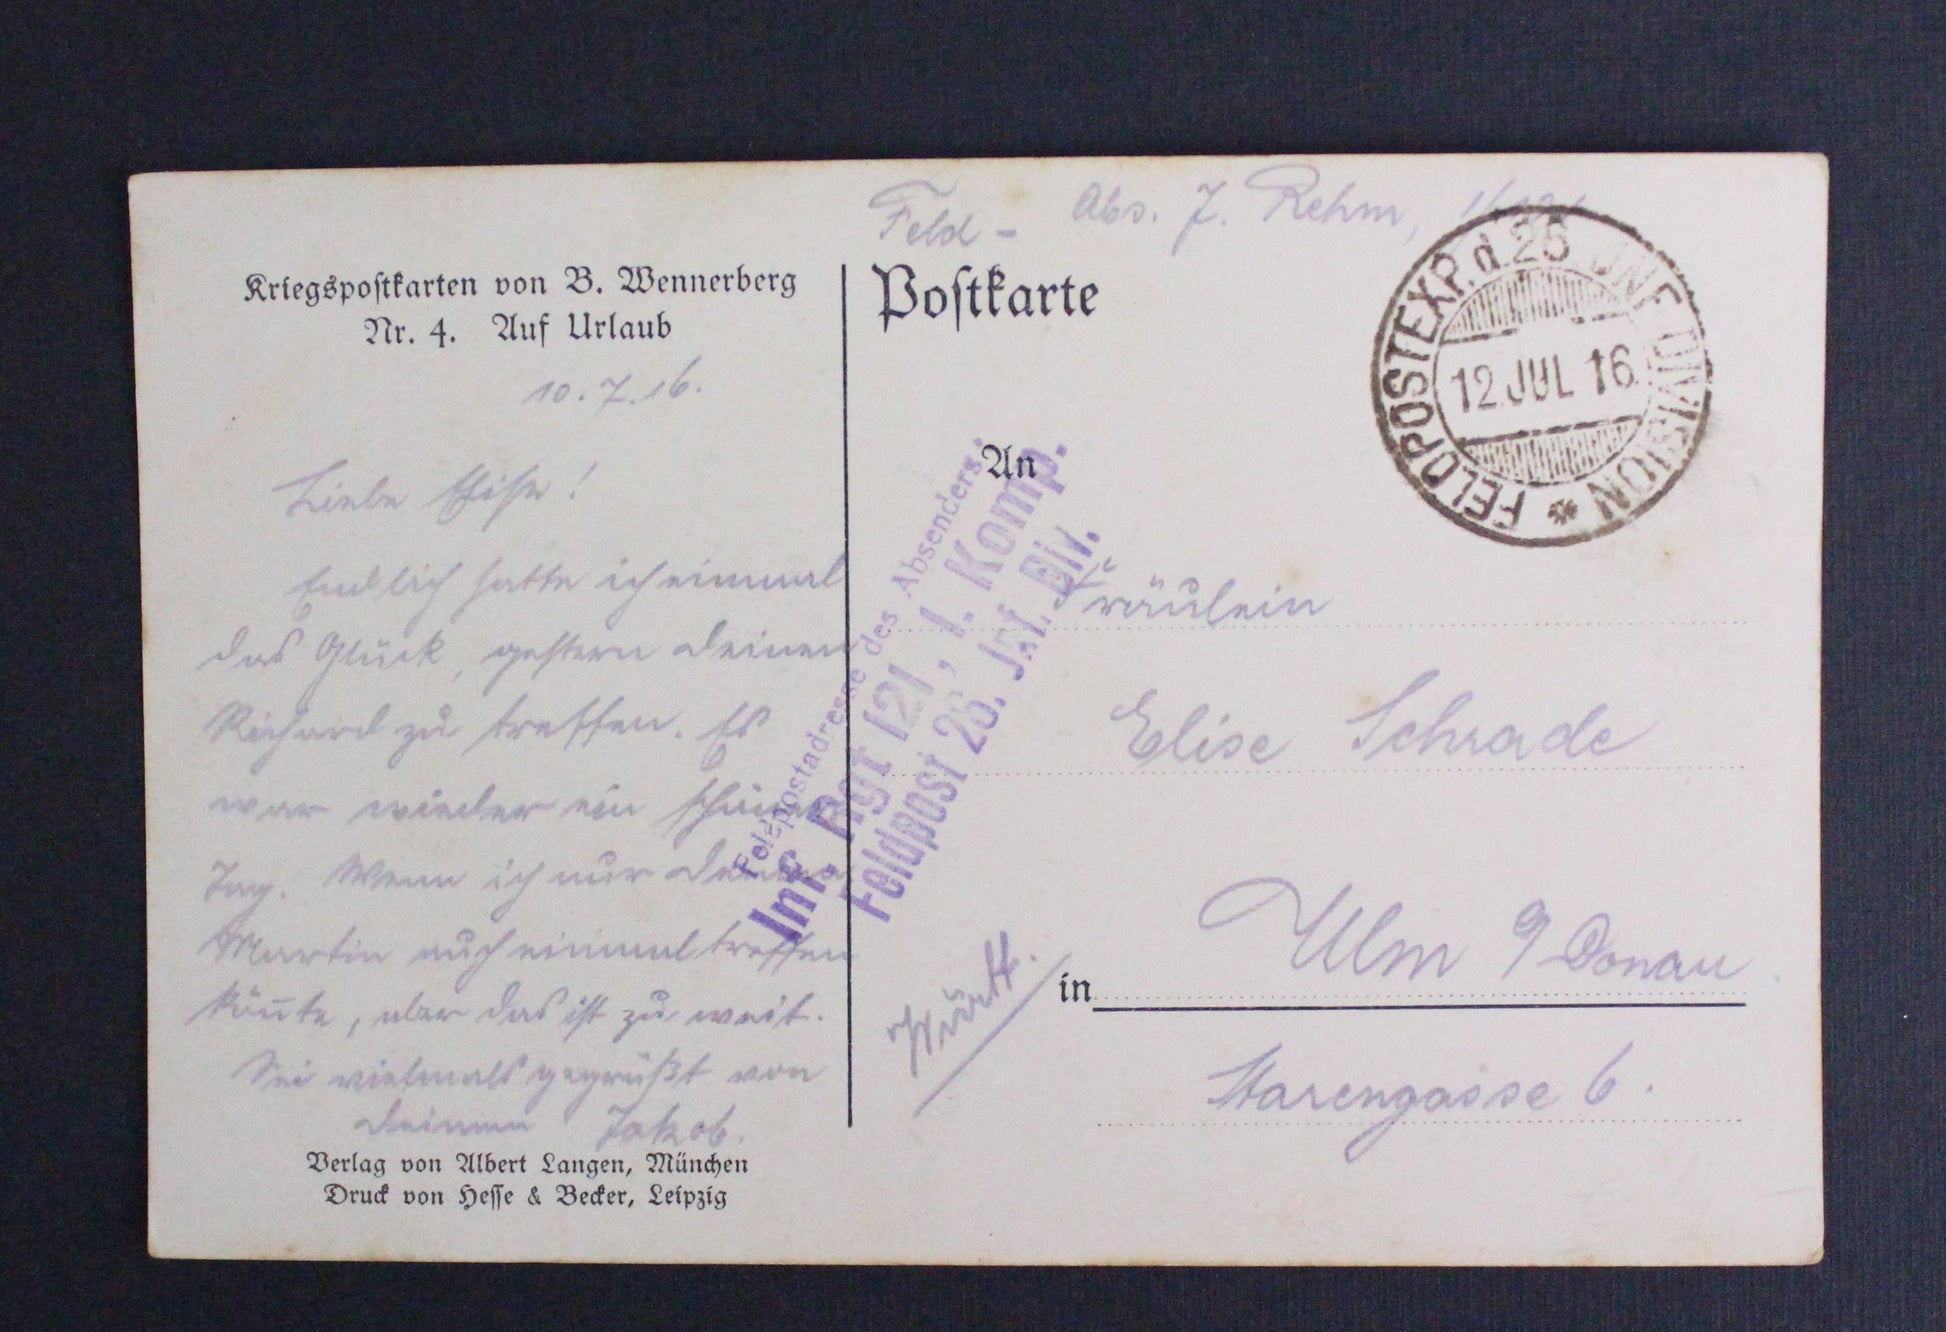 Kriegspostkarten von B. Wennerberg
Nr. 4. Auf Urlaub
10.7.16.
Liebe Elise!
Endlich hatte ich einmal
das Glück, gestern deinen
Richard zu treffen. Es
war wieder ein schöner
Tag. Wenn ich nur deinen
Martin auch einmal treffen
kön̄te, aber das ist zu weit.
Sei vielmals gegrüßt von
deinem Jakob.
Verlag von Albert Langen, München
Druck von Hesse & Becker, Leipzig
Feld- Abs. J. Rehm,
Postkarte
FELDPOSTEXP. d. 26 INF. DIVISION
12 JUL 16
An
Feldpostadresse des Absenders:
Inf. Rgt 121, 1. Komp.
Feldpost 26. Inf. Div.
Fräulein
Elise Schrade
in Ulm a/Donau
Württ.
Starengasse 6.